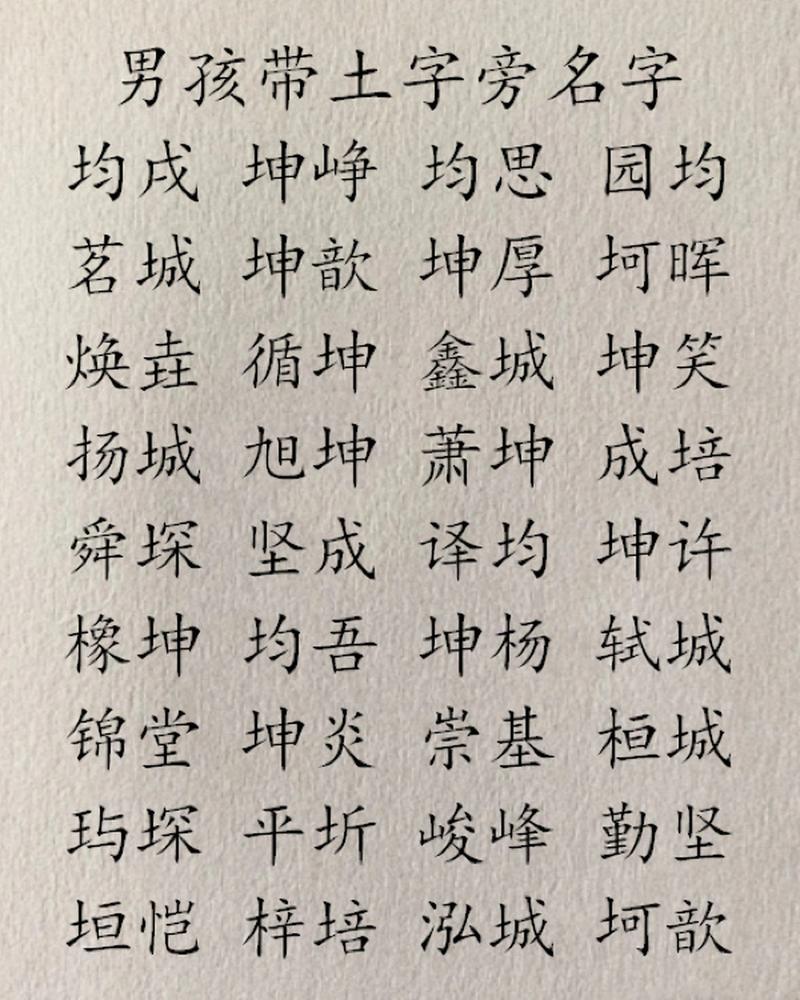 男孩带土字旁名字
均戌 坤峥 均思 园均
茗城 坤歆 坤厚 坷晖
焕垚 循坤 鑫城 坤笑
扬城 旭坤 萧坤 成培
舜埰 坚成 译均 坤许
橡坤 均吾 坤杨 轼城
锦堂 坤炎 崇基 桓城
玙埰 平圻 峻峰 勤坚
垣恺 梓培 泓城 坷歆